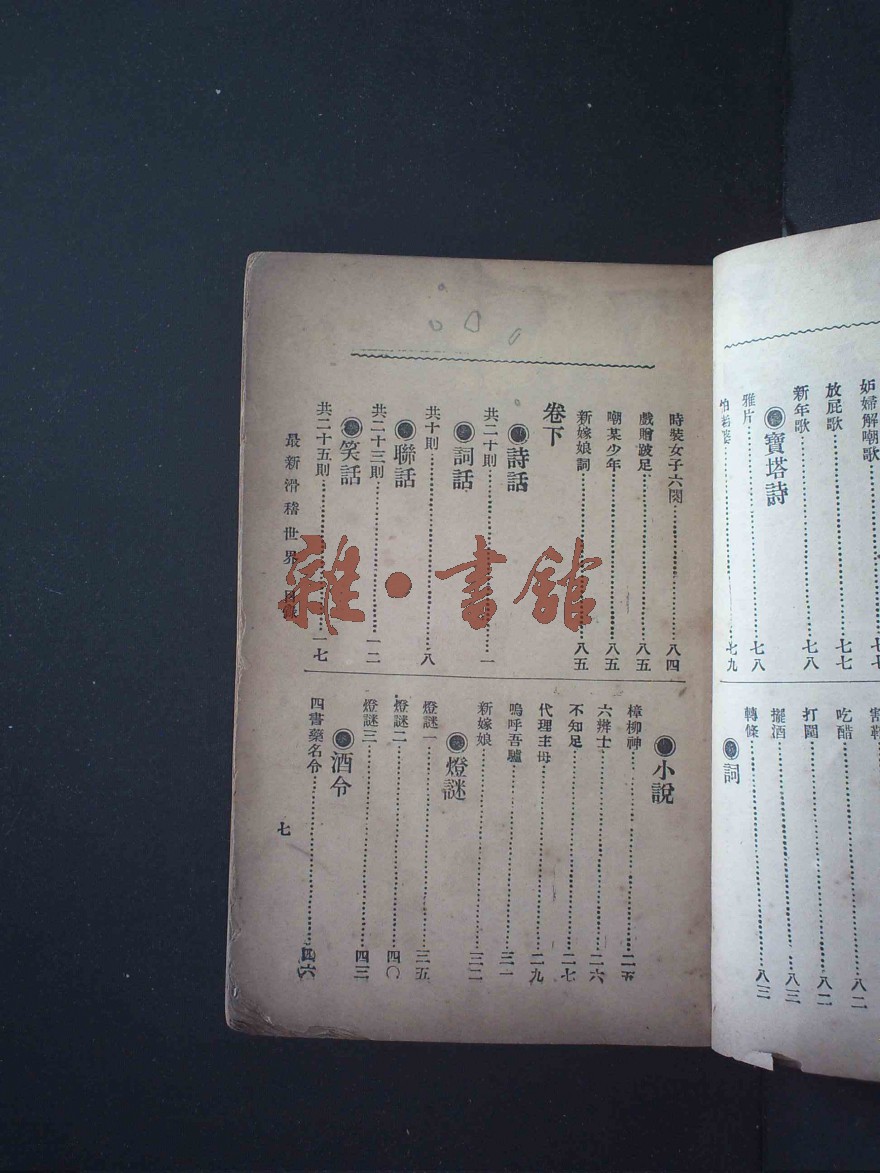 妒婦解嘲歌……七七
放屁歌……七七
新年歌……七八
寶塔詩
雅片……七八
怕老婆……七九
吃醋……八二
打鬭……八二
擺酒……八三
轉條……八三
詞
時裝女子六闋……八四
戲贈跛足……八五
嘲某少年……八五
新嫁娘詞……八五
卷下
詩話
共二十則……一
詞話
共十則……八
聯話
共二十三則……一二
笑話
共二十五則……一七
小說
樟柳神……二五
六辨士……二六
不知足……二七
代理主母……二九
嗚呼吾驢……三一
新嫁娘……三二
燈謎
燈謎一……三五
燈謎二……四〇
燈謎三……四三
酒令
四書藥名令……四六
最新滑稽世界 目錄
七
雜·書館